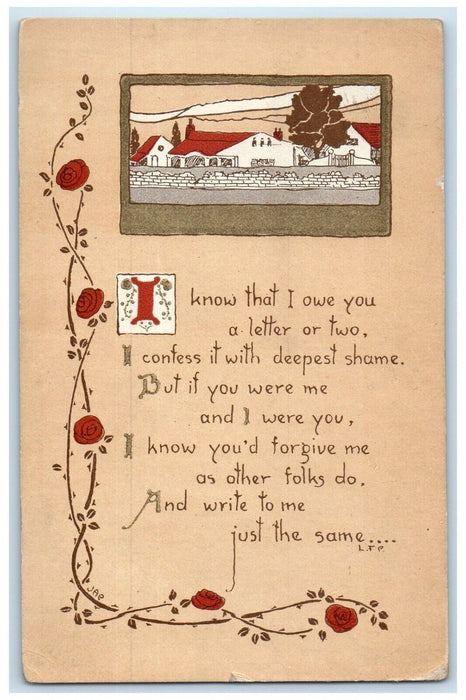 I know that I owe you
a letter or two,
I confess it with deepest shame.
But if you were me
and I were you,
I know you'd forgive me
as other folks do.
And write to me
just the same....
L.T.P.
JAP